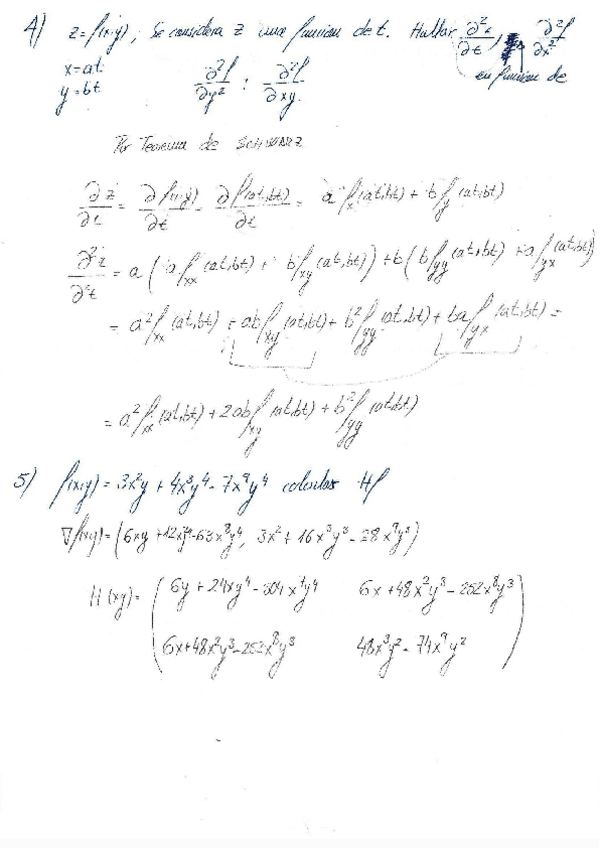 4) z=f(x,y), Se considera z una funcion de t. Hallar ∂²z/∂t, ∂²f/∂x²
x=at en funcion de
y=bt ∂²f/∂y² : ∂²f/∂xy.
Por Teorema de SCHWARZ
∂z/∂t = ∂f(x,y)/∂t = ∂f(at,bt)/∂t = a f_x(at,bt) + b f_y(at,bt)
∂²z/∂²t = a (a f_xx(at,bt) + b f_xy(at,bt)) + b (b f_yy(at,bt) + a f_yx(at,bt))
= a² f_xx(at,bt) + ab f_xy(at,bt) + b² f_yy(at,bt) + ba f_yx(at,bt) =
= a² f_xx(at,bt) + 2ab f_xy(at,bt) + b² f_yy(at,bt)
5) f(x,y) = 3x²y + 4x³y⁴ - 7x⁹y⁴ calcular Hf
∇f(x,y) = (6xy + 12x²y⁴ - 63x⁸y⁴, 3x² + 16x³y³ - 28x⁹y³)
H(xy) = ( 6y + 24xy⁴ - 504x⁷y⁴ 6x + 48x²y³ - 252x⁸y³
6x + 48x²y³ - 252x⁸y³ 48x³y² - 74x⁹y² )